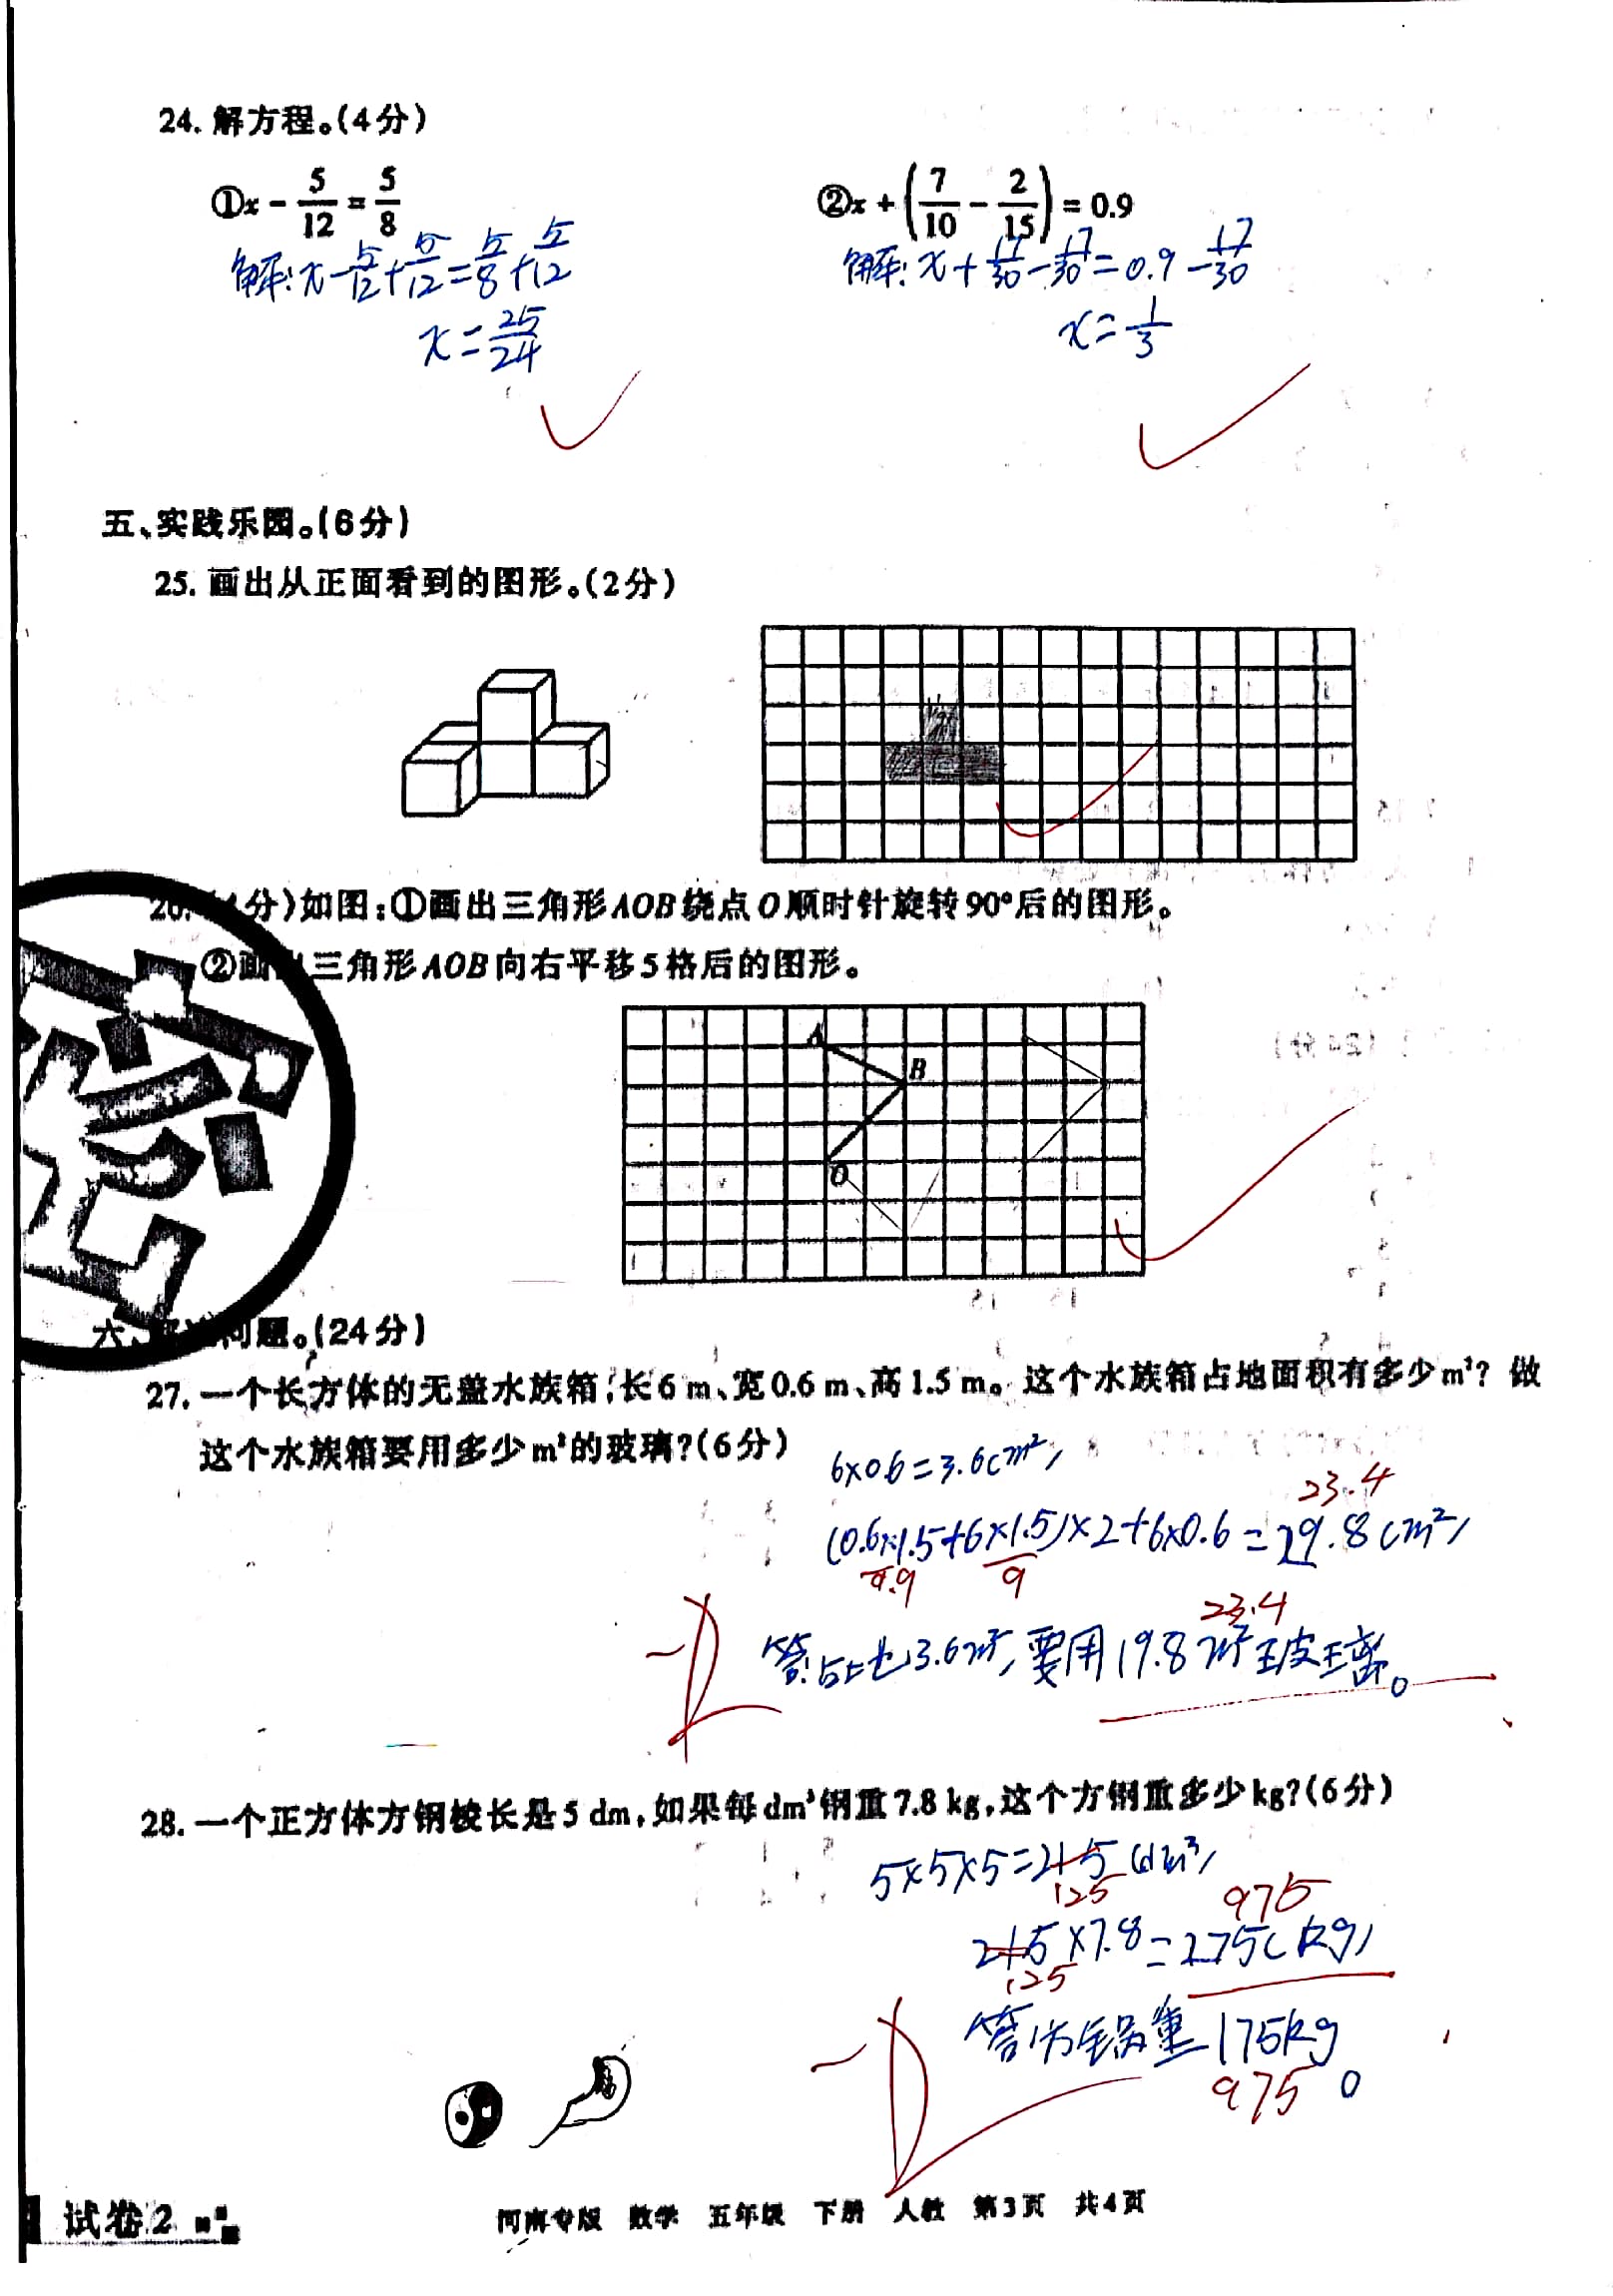 24. 解方程。(4分)
①x - 5/12 = 5/8 ②x + (7/10 - 2/15) = 0.9
解: x - 5/12 + 5/12 = 5/8 + 5/12 解: x + 17/30 - 17/30 = 0.9 - 17/30
x = 25/24 x = 1/3
五、实践乐园。(6分)
25. 画出从正面看到的图形。(2分)
26. (4分)如图:①画出三角形AOB绕点O顺时针旋转90°后的图形。
②画出三角形AOB向右平移5格后的图形。
A
B
O
六、问题。(24分)
27. 一个长方体的无盖水族箱,长6 m、宽0.6 m、高1.5 m。这个水族箱占地面积有多少m²? 做
这个水族箱要用多少m²的玻璃?(6分)
6×0.6=3.6(m²)
23.4
(0.6×1.5+6×1.5)×2+6×0.6=19.8(m²)
0.9 9
23.4
答:占地3.6m², 要用19.8m²玻璃。
28. 一个正方体方钢棱长是5 dm,如果每dm³钢重7.8 kg,这个方钢重多少kg?(6分)
5×5×5=215(dm³)
125 975
215×7.8=175(kg)
125
答:方锅重175kg。
975
试卷2
河南专版 数学 五年级 下册 人教 第3页 共4页